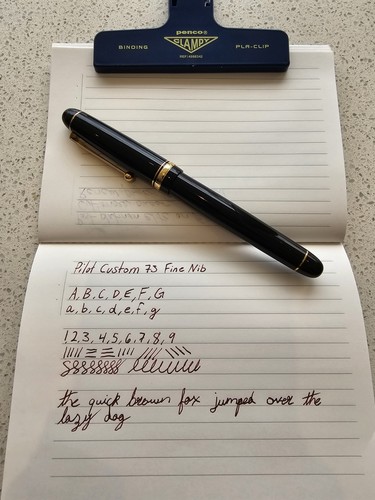 penco®
BINDING CLAMPY PLA-CLIP
Pilot Custom 73 Fine Nib
A, B, C, D, E, F, G
a, b, c, d, e, f, g
1 2 3, 4, 5, 6, 7, 8, 9
the quick brown fox jumped over the
lazy dog